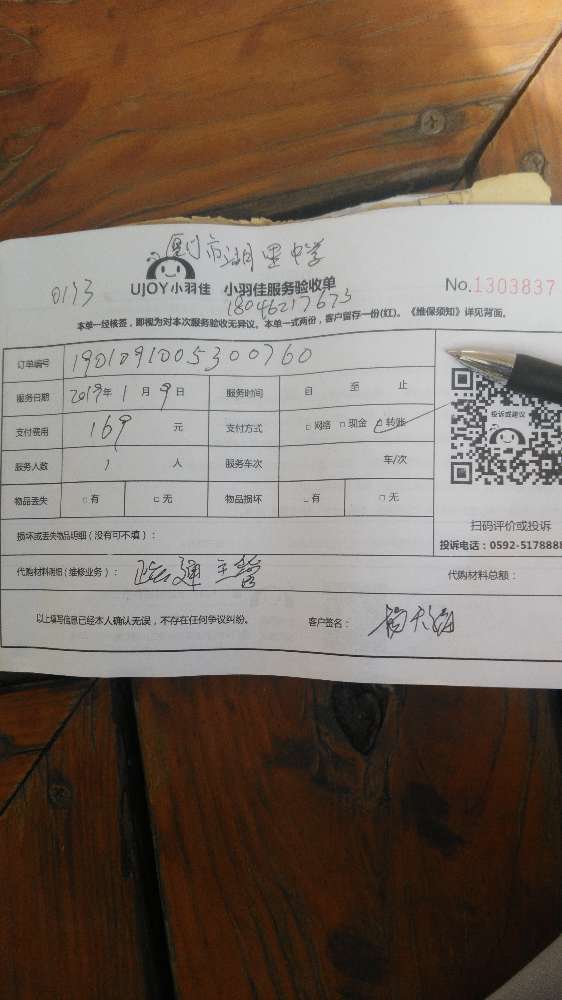 厦门市湖里中学
0193
UJOY小羽佳 小羽佳服务验收单 No.1303837
18046217673
本单一经核签，即视为对本次服务验收无异议。本单一式两份，客户留存一份(红)。《维保须知》详见背面。
订单编号 1901091005300760
服务日期 2019年 1 月 9 日 服务时间 自 至 止
投诉或建议
支付费用 169 元 支付方式 □ 网络 □ 现金 □ 转账
服务人数 1 人 服务车次 车/次
物品丢失 □ 有 □ 无 物品损坏 □ 有 □ 无
扫码评价或投诉
损坏或丢失物品明细（没有可不填）：
投诉电话：0592-5178888
代购材料明细（维修业务）： 疏通主管 代购材料总额：
以上填写信息已经本人确认无误，不存在任何争议纠纷。 客户签名：